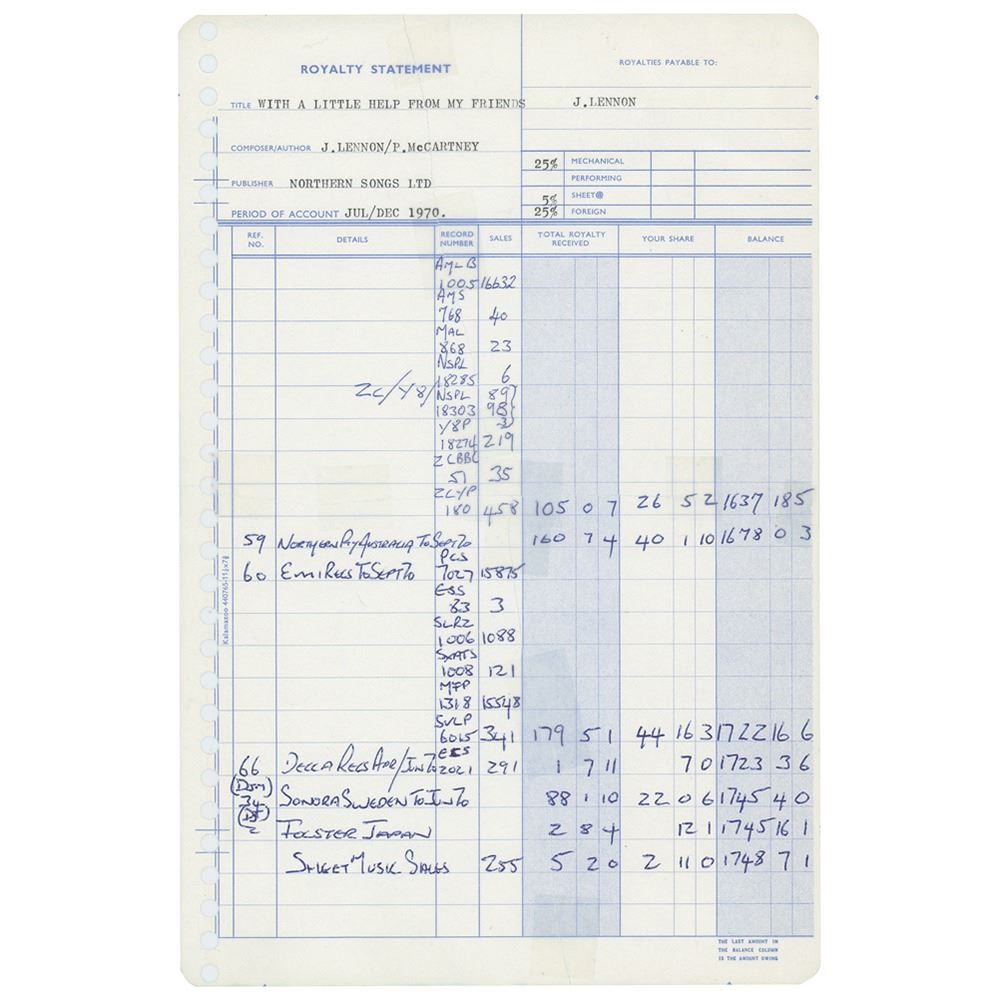 ROYALTY STATEMENT
ROYALTIES PAYABLE TO:
TITLE WITH A LITTLE HELP FROM MY FRIENDS J.LENNON
COMPOSER/AUTHOR J.LENNON/P.McCARTNEY
25% MECHANICAL
PERFORMING
PUBLISHER NORTHERN SONGS LTD
5% SHEET@
PERIOD OF ACCOUNT JUL/DEC 1970. 25% FOREIGN
REF. NO. DETAILS RECORD NUMBER SALES TOTAL ROYALTY RECEIVED YOUR SHARE BALANCE
AMLB
1005 16632
AMS
768 40
MAL
868 23
NSPL
18285 6
ZC/Y8/ NSPL 89
18303 98
Y8P 3
18274 219
ZCBBC
51 35
ZCYP
180 458 105 0 7 26 5 2 1637 18 5
59 NORTHERN PTY AUSTRALIA TO SEPT 70 160 7 4 40 1 10 1678 0 3
PCS
60 EMI RECS TO SEPT 70 7027 15875
ESS
83 3
SLRZ
1006 1088
SXATS
1008 121
MFP
1318 15548
SVLP
6015 341 179 5 1 44 16 3 1722 16 6
66 DECCA RECS APR/JUN 70 2021 291 1 7 11 7 0 1723 3 6
(DOM)
34 SONORA SWEDEN TO JUN 70 88 1 10 22 0 6 1745 4 0
2 FOLSTER JAPAN 2 8 4 12 1 1745 16 1
SHEET MUSIC SALES 255 5 2 0 2 11 0 1748 7 1
Kalamazoo 440765-11
THE LAST AMOUNT IN
THE BALANCE COLUMN
IS THE AMOUNT OWING